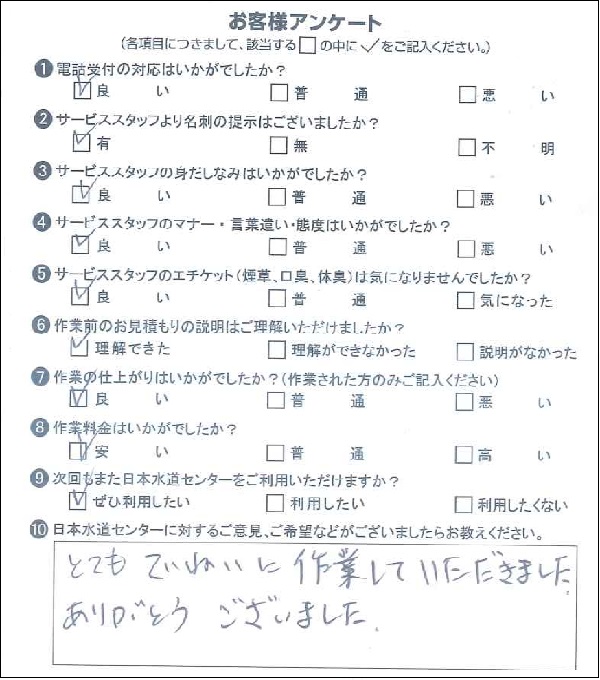 お客様アンケート
(各項目につきまして、該当する□の中に✓をご記入ください。)
❶電話受付の対応はいかがでしたか?
☑良い □普通 □悪い
❷サービススタッフより名刺の提示はございましたか?
☑有 □無 □不明
❸サービススタッフの身だしなみはいかがでしたか?
☑良い □普通 □悪い
❹サービススタッフのマナー・言葉遣い・態度はいかがでしたか?
☑良い □普通 □悪い
❺サービススタッフのエチケット(煙草、口臭、体臭)は気になりませんでしたか?
☑良い □普通 □気になった
❻作業前のお見積もりの説明はご理解いただけましたか?
☑理解できた □理解ができなかった □説明がなかった
❼作業の仕上がりはいかがでしたか?(作業された方のみご記入ください)
☑良い □普通 □悪い
❽作業料金はいかがでしたか?
☑安い □普通 □高い
❾次回もまた日本水道センターをご利用いただけますか?
☑ぜひ利用したい □利用したい □利用したくない
❿日本水道センターに対するご意見、ご希望などがございましたらお教えください。
とてもていねいに作業していただきました。
ありがとうございました。